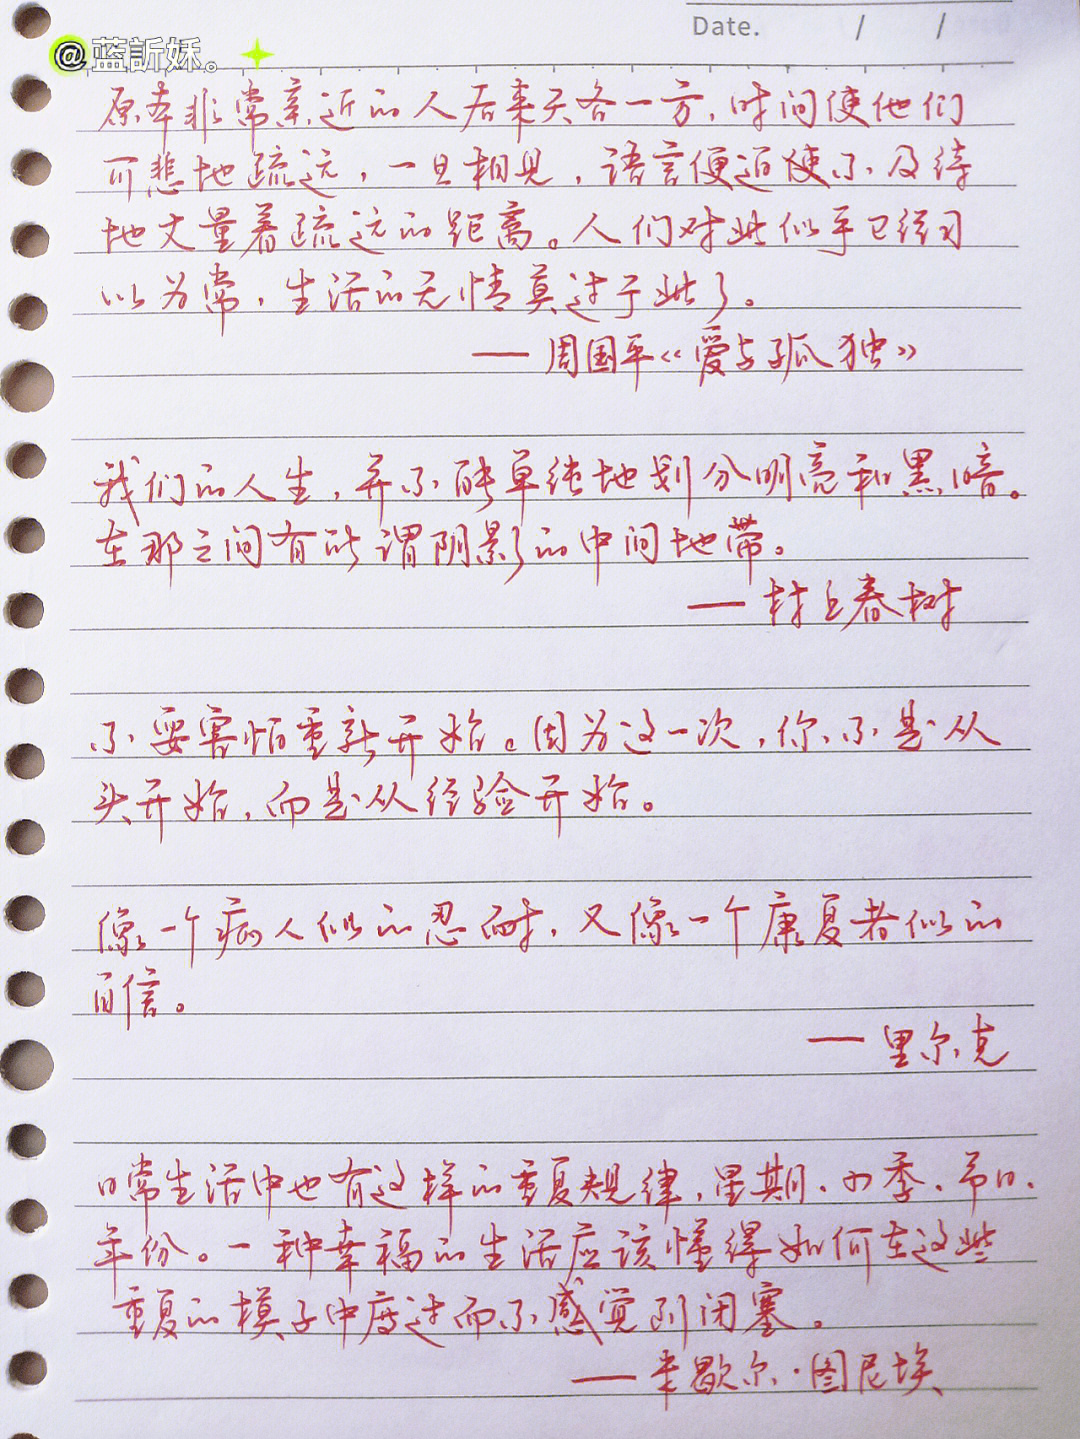 Date. / /
@蓝訢妺。
原本非常亲近的人后来天各一方，时间使他们
可悲地疏远，一旦相见，语言便迫使不及待
地丈量着疏远的距离。人们对此似乎已经习
以为常，生活的无情莫过于此了。
——周国平《爱与孤独》
我们的人生，并不能单纯地划分明亮和黑暗。
在那之间有所谓阴影的中间地带。
——村上春树
不要害怕重新开始。因为这一次，你不是从
头开始，而是从经验开始。
像一个病人似的忍耐，又像一个康复者似的
自信。
——里尔克
日常生活中也有这样的重复规律，星期、四季、节日、
年份。一种幸福的生活应该懂得如何在这些
重复的模子中度过而不感觉到闭塞。
——米歇尔·图尼埃